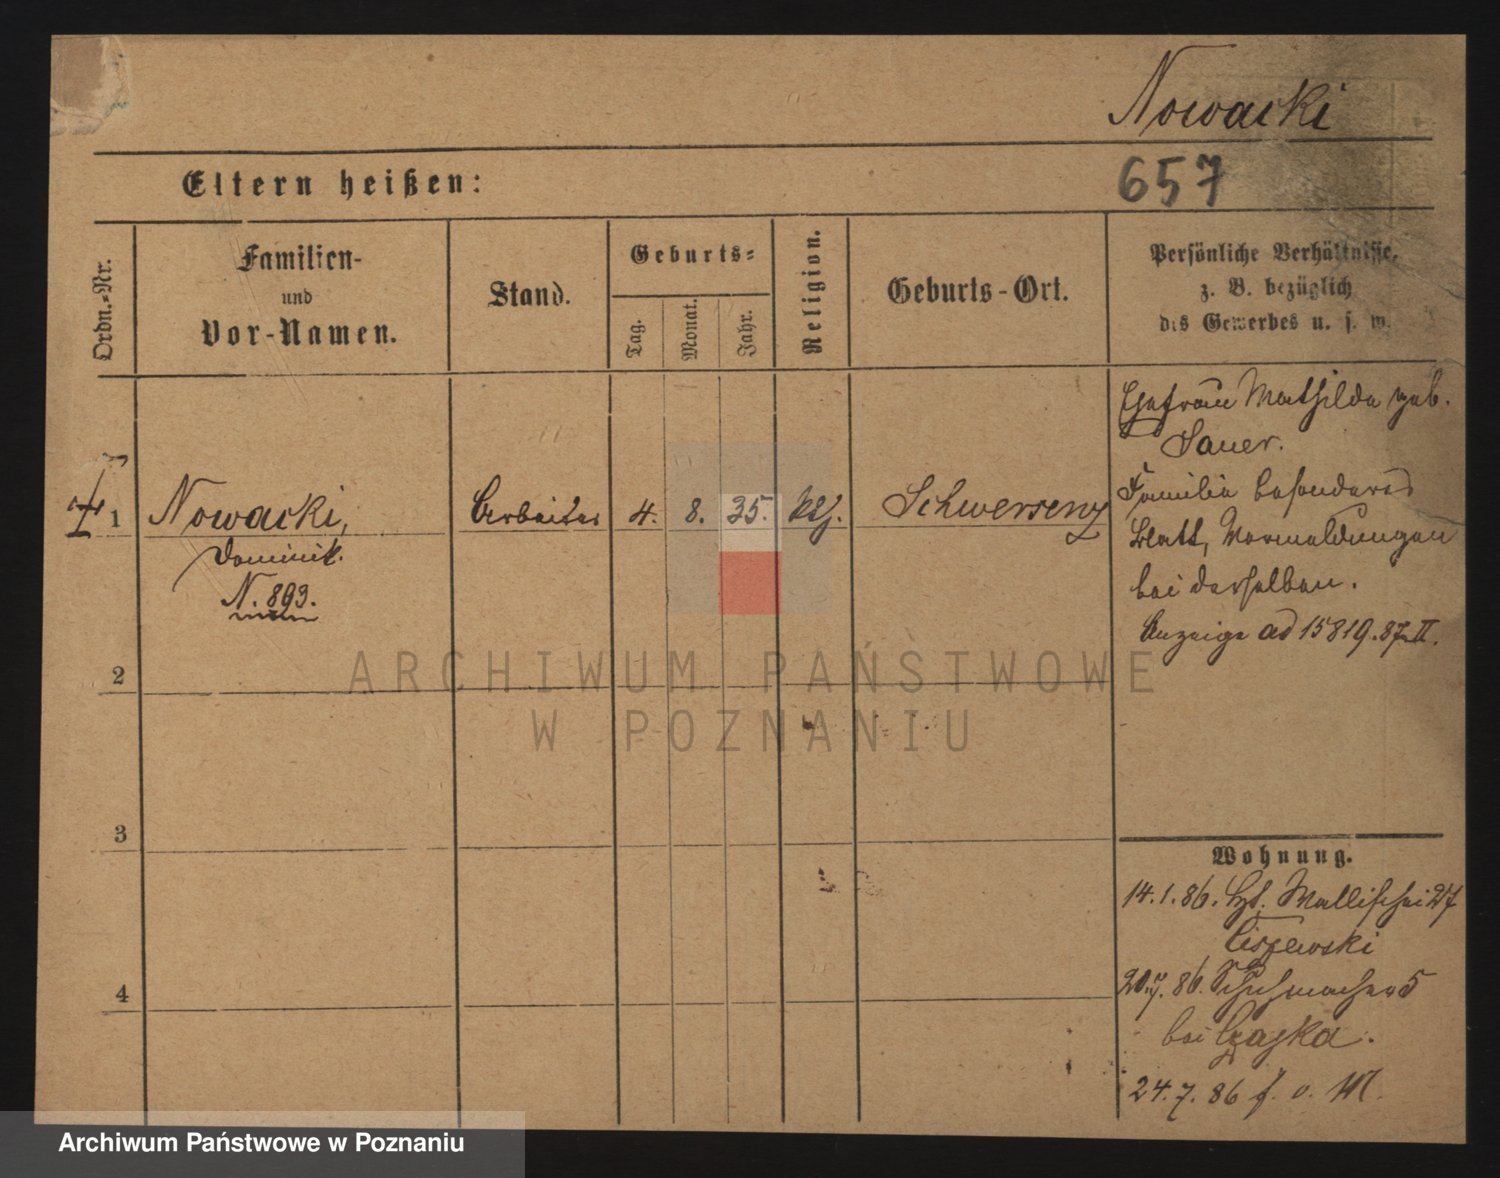 Nowacki
657
Eltern heißen:
Ordn.-Nr.
Familien-
und
Vor-Namen.
Stand.
Geburts-
Tag.
Monat.
Jahr.
Religion.
Geburts-Ort.
Persönliche Verhältnisse,
z. B. bezüglich
des Gewerbes u. s. w.
1
Nowacki,
Dominik.
N. 893.
Arbeiter
4.
8.
35.
kth.
Schwersenz
Ehefrau Mathilde geb.
Sauer.
Familie besonderes
Blatt, Vormeldungen
bei derselben.
Anzeige ad 15819.87 II.
2
3
4
Wohnung.
14.1.86. Wallischei 27
Ciszewski
20.7.86. Schuhmacher 5
bei Czajka.
24.7.86 f. v. M.
ARCHIWUM PAŃSTWOWE
W POZNANIU
Archiwum Państwowe w Poznaniu